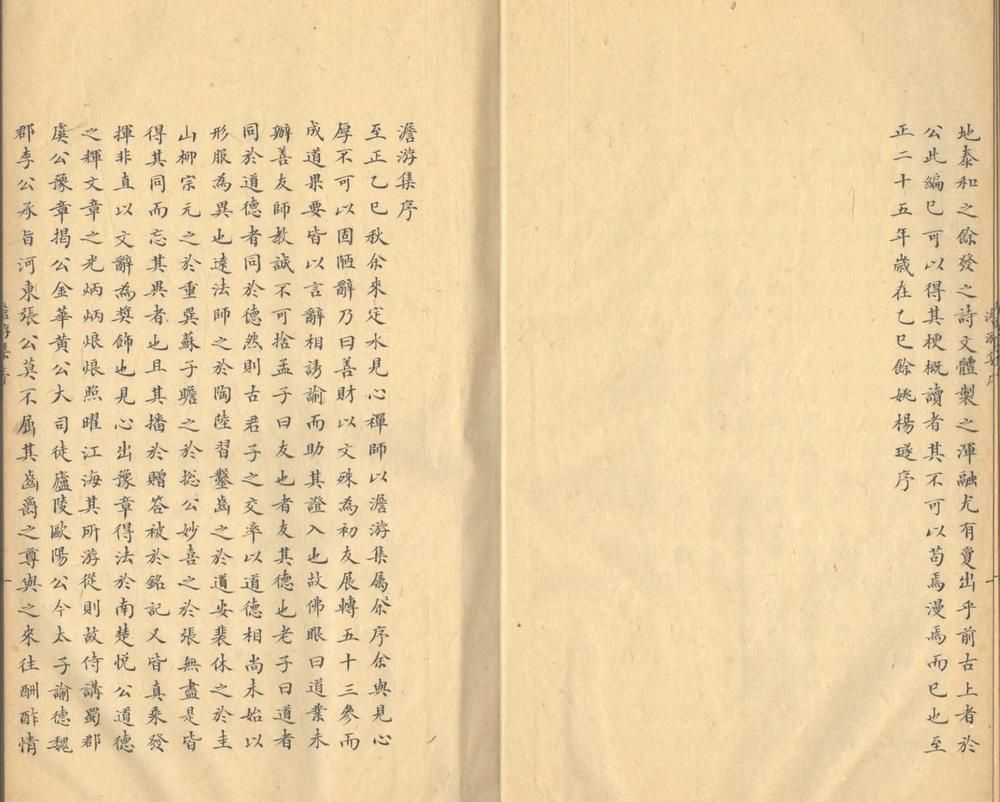 地泰和之餘發之詩文體製之渾融尤有敻出乎前古上者於
公此編已可以得其梗概讀者其不可以苟焉漫焉而已也至
正二十五年歲在乙巳餘姚楊璲序
澹游集序
至正乙巳秋余來定水見心禪師以澹游集屬余序余與見心
厚不可以固陋辭乃曰善財以文殊為初友展轉五十三參而
成道果要皆以言辭相誘諭而助其證入也故佛眼曰道業未
辦善友師教誠不可捨孟子曰友也者友其德也老子曰道者
同於道德者同於德然則古君子之交率以道德相尚未始以
形服為異也遠法師之於陶陸習鑿齒之於道安裴休之於圭
山柳宗元之於重巽蘇子瞻之於捴公妙喜之於張無盡是皆
得其同而忘其異者也且其播於贈答被於銘記又皆真乘發
揮非直以文辭為獎飾也見心出豫章得法於南楚悅公道德
之輝文章之光炳炳烺烺照曜江海其所游從則故侍講蜀郡
虞公豫章揭公金華黃公大司徒廬陵歐陽公今太子諭德魏
郡李公承旨河東張公莫不屈其齒爵之尊與之來往酬酢情
澹游集序
一